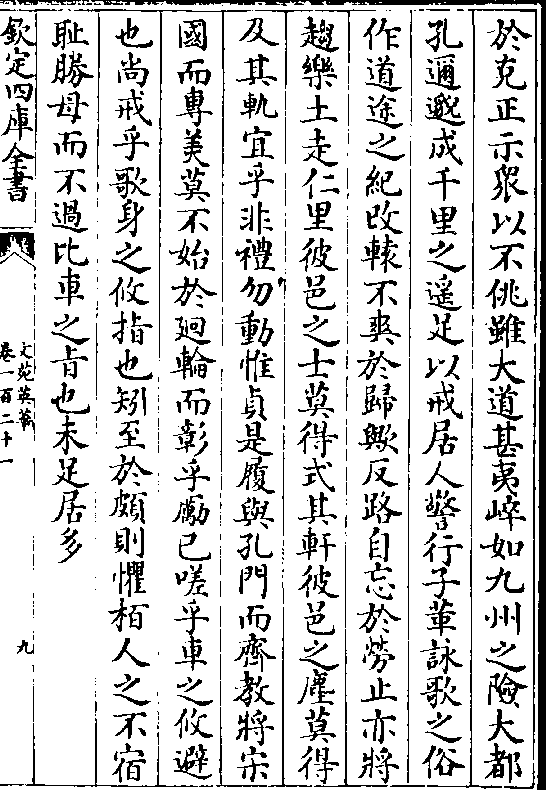 於克正示衆以不佻雖大道甚夷崒如九州之險大都
孔邇邈成千里之遥足以戒居人警行子革詠歌之俗
作道途之紀改轅不爽於歸歟反路自忘於勞止亦將
趨樂土走仁里彼邑之士莫得式其軒彼邑之塵莫得
及其軌宜乎非禮勿動惟貞是履與孔門而齊教將宋
國而專美莫不始於廻輪而彰乎勵己嗟乎車之攸避
也尚戒乎歌身之攸指也矧至於頗則懼栢人之不宿
耻勝母而不過比車之旨也未足居多
欽定四庫全書
文苑英華
卷一百二十一
九